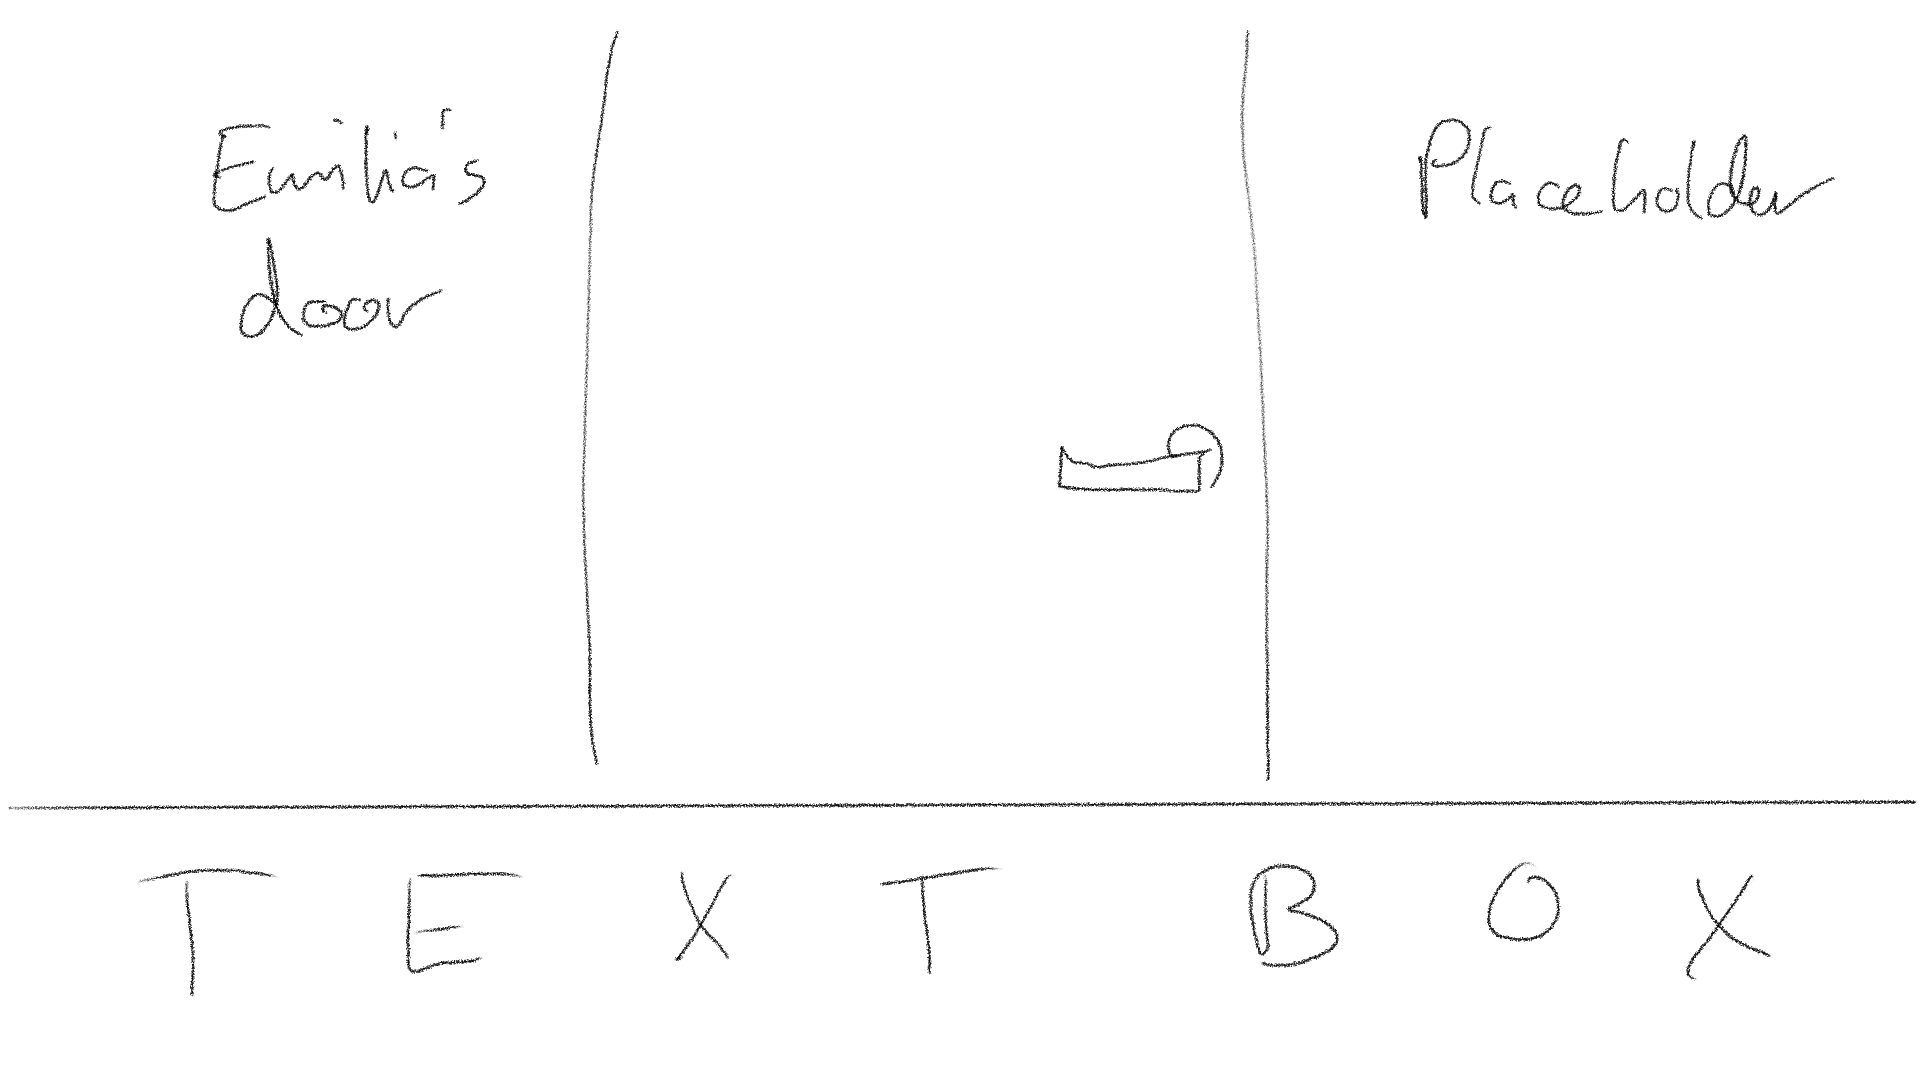 Emilia's
door
Placeholder
TEXT BOX